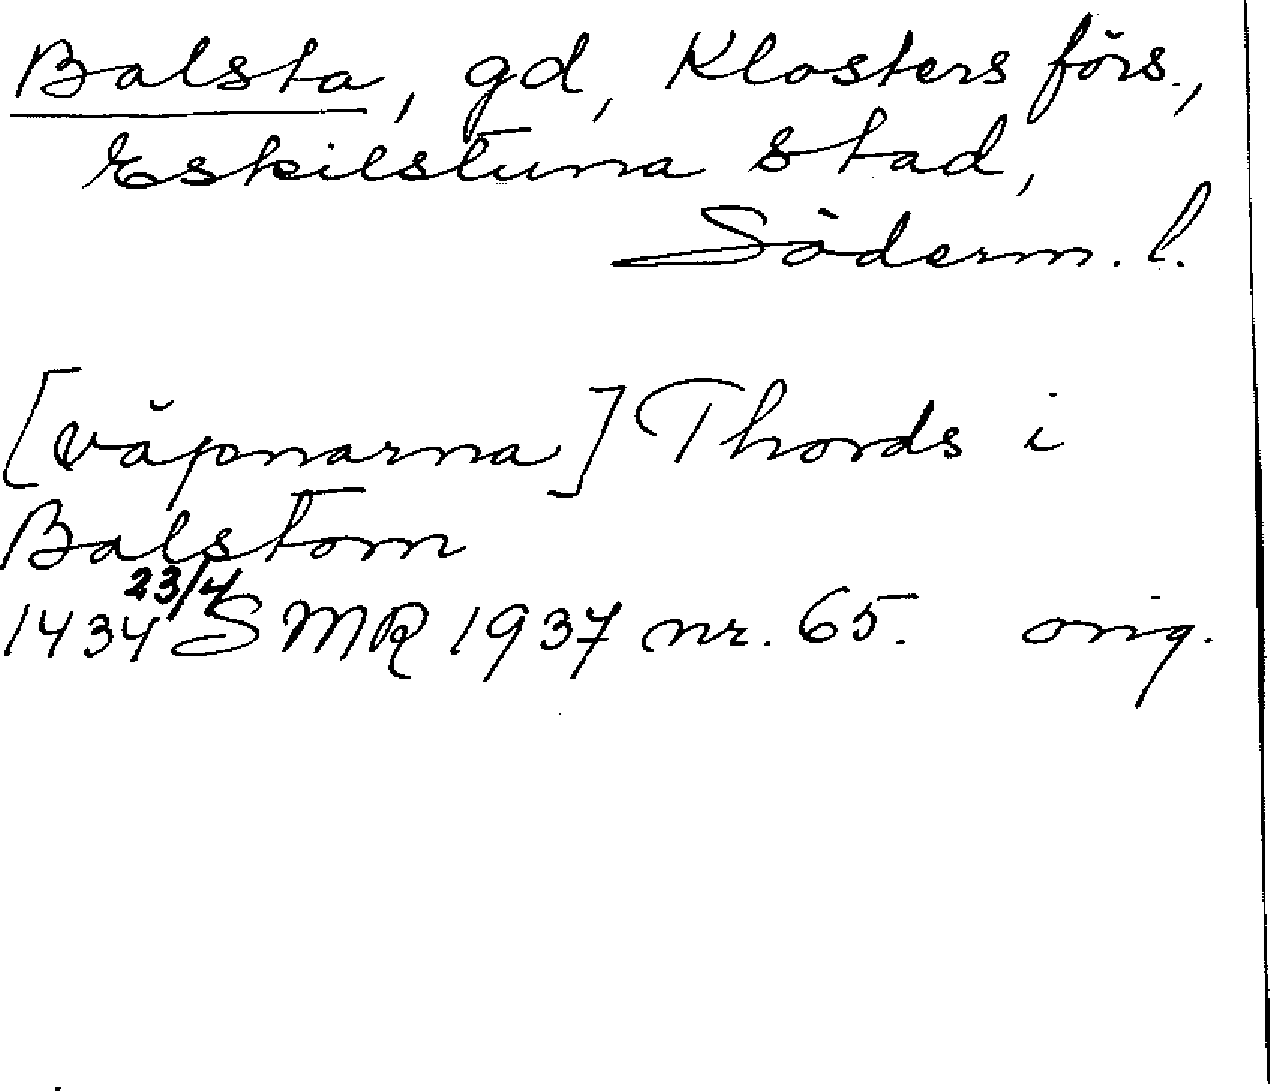 Balsta, gd, Klosters förs.,
Eskilstuna stad,
Söderm. l.
[väpnarna] Thords i
Balstom
1434 23/4 SMR 1937 nr. 65. orig.